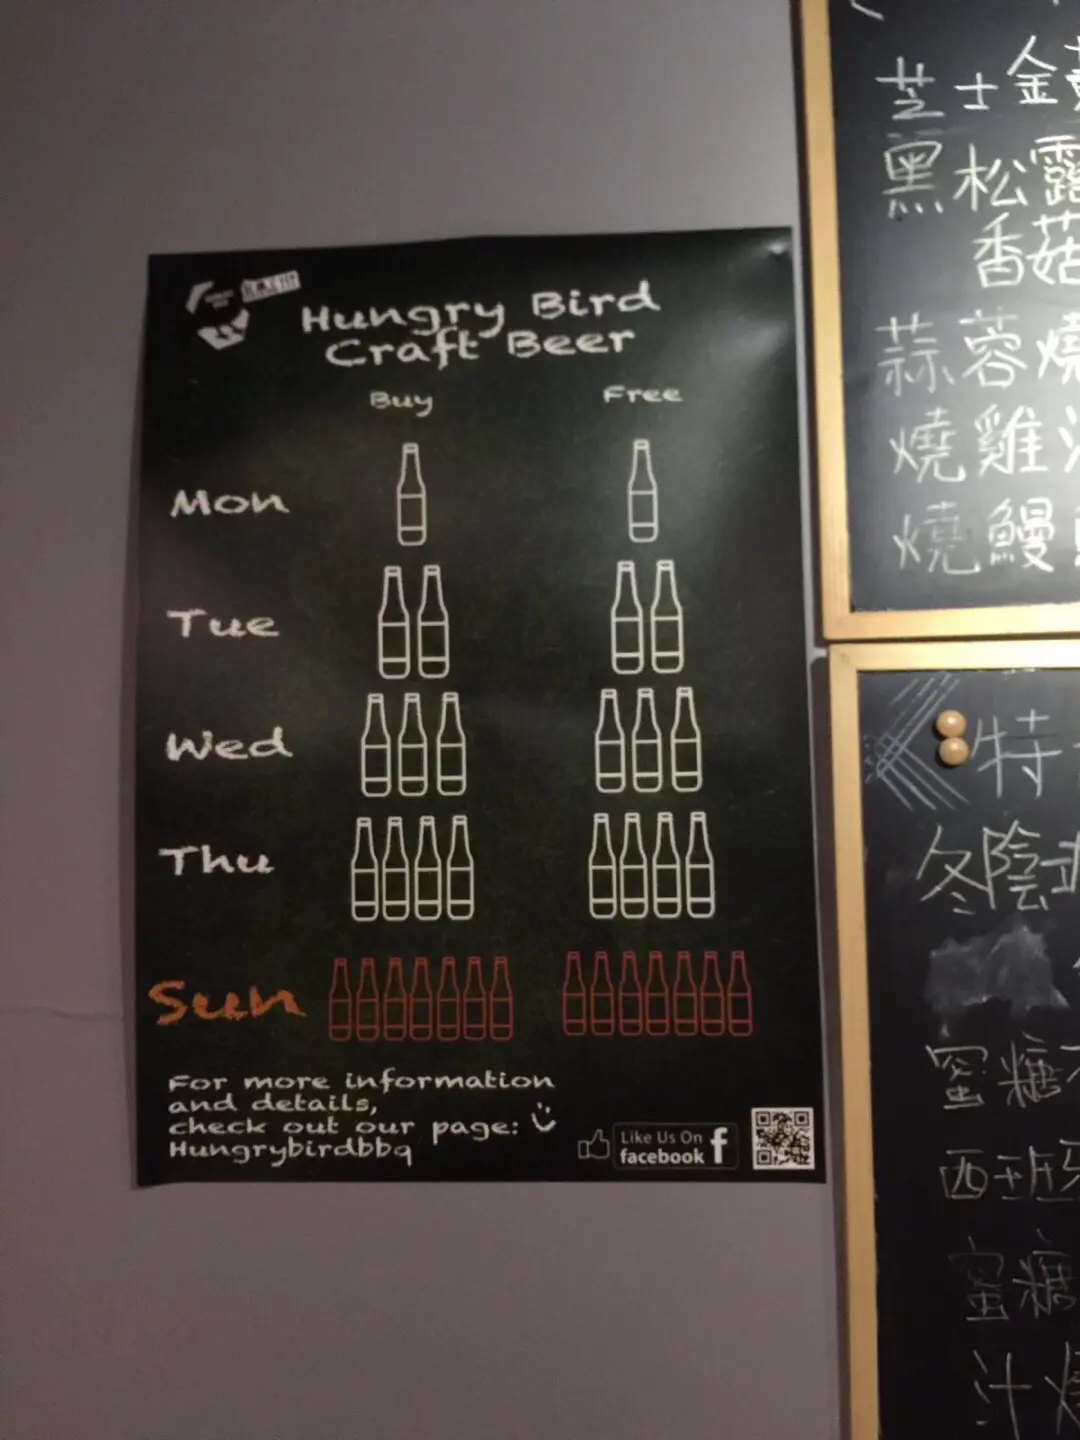 Hungry Bird
Craft Beer
Buy Free
Mon
Tue
Wed
Thu
Sun
For more information
and details,
check out our page:
Hungrybirdbbq
Like Us On
facebook f
芝士金
黑松露
香菇
蒜蓉燒
燒雞
燒鰻
特
冬陰
蜜糖
西班牙
蜜糖
汁燒